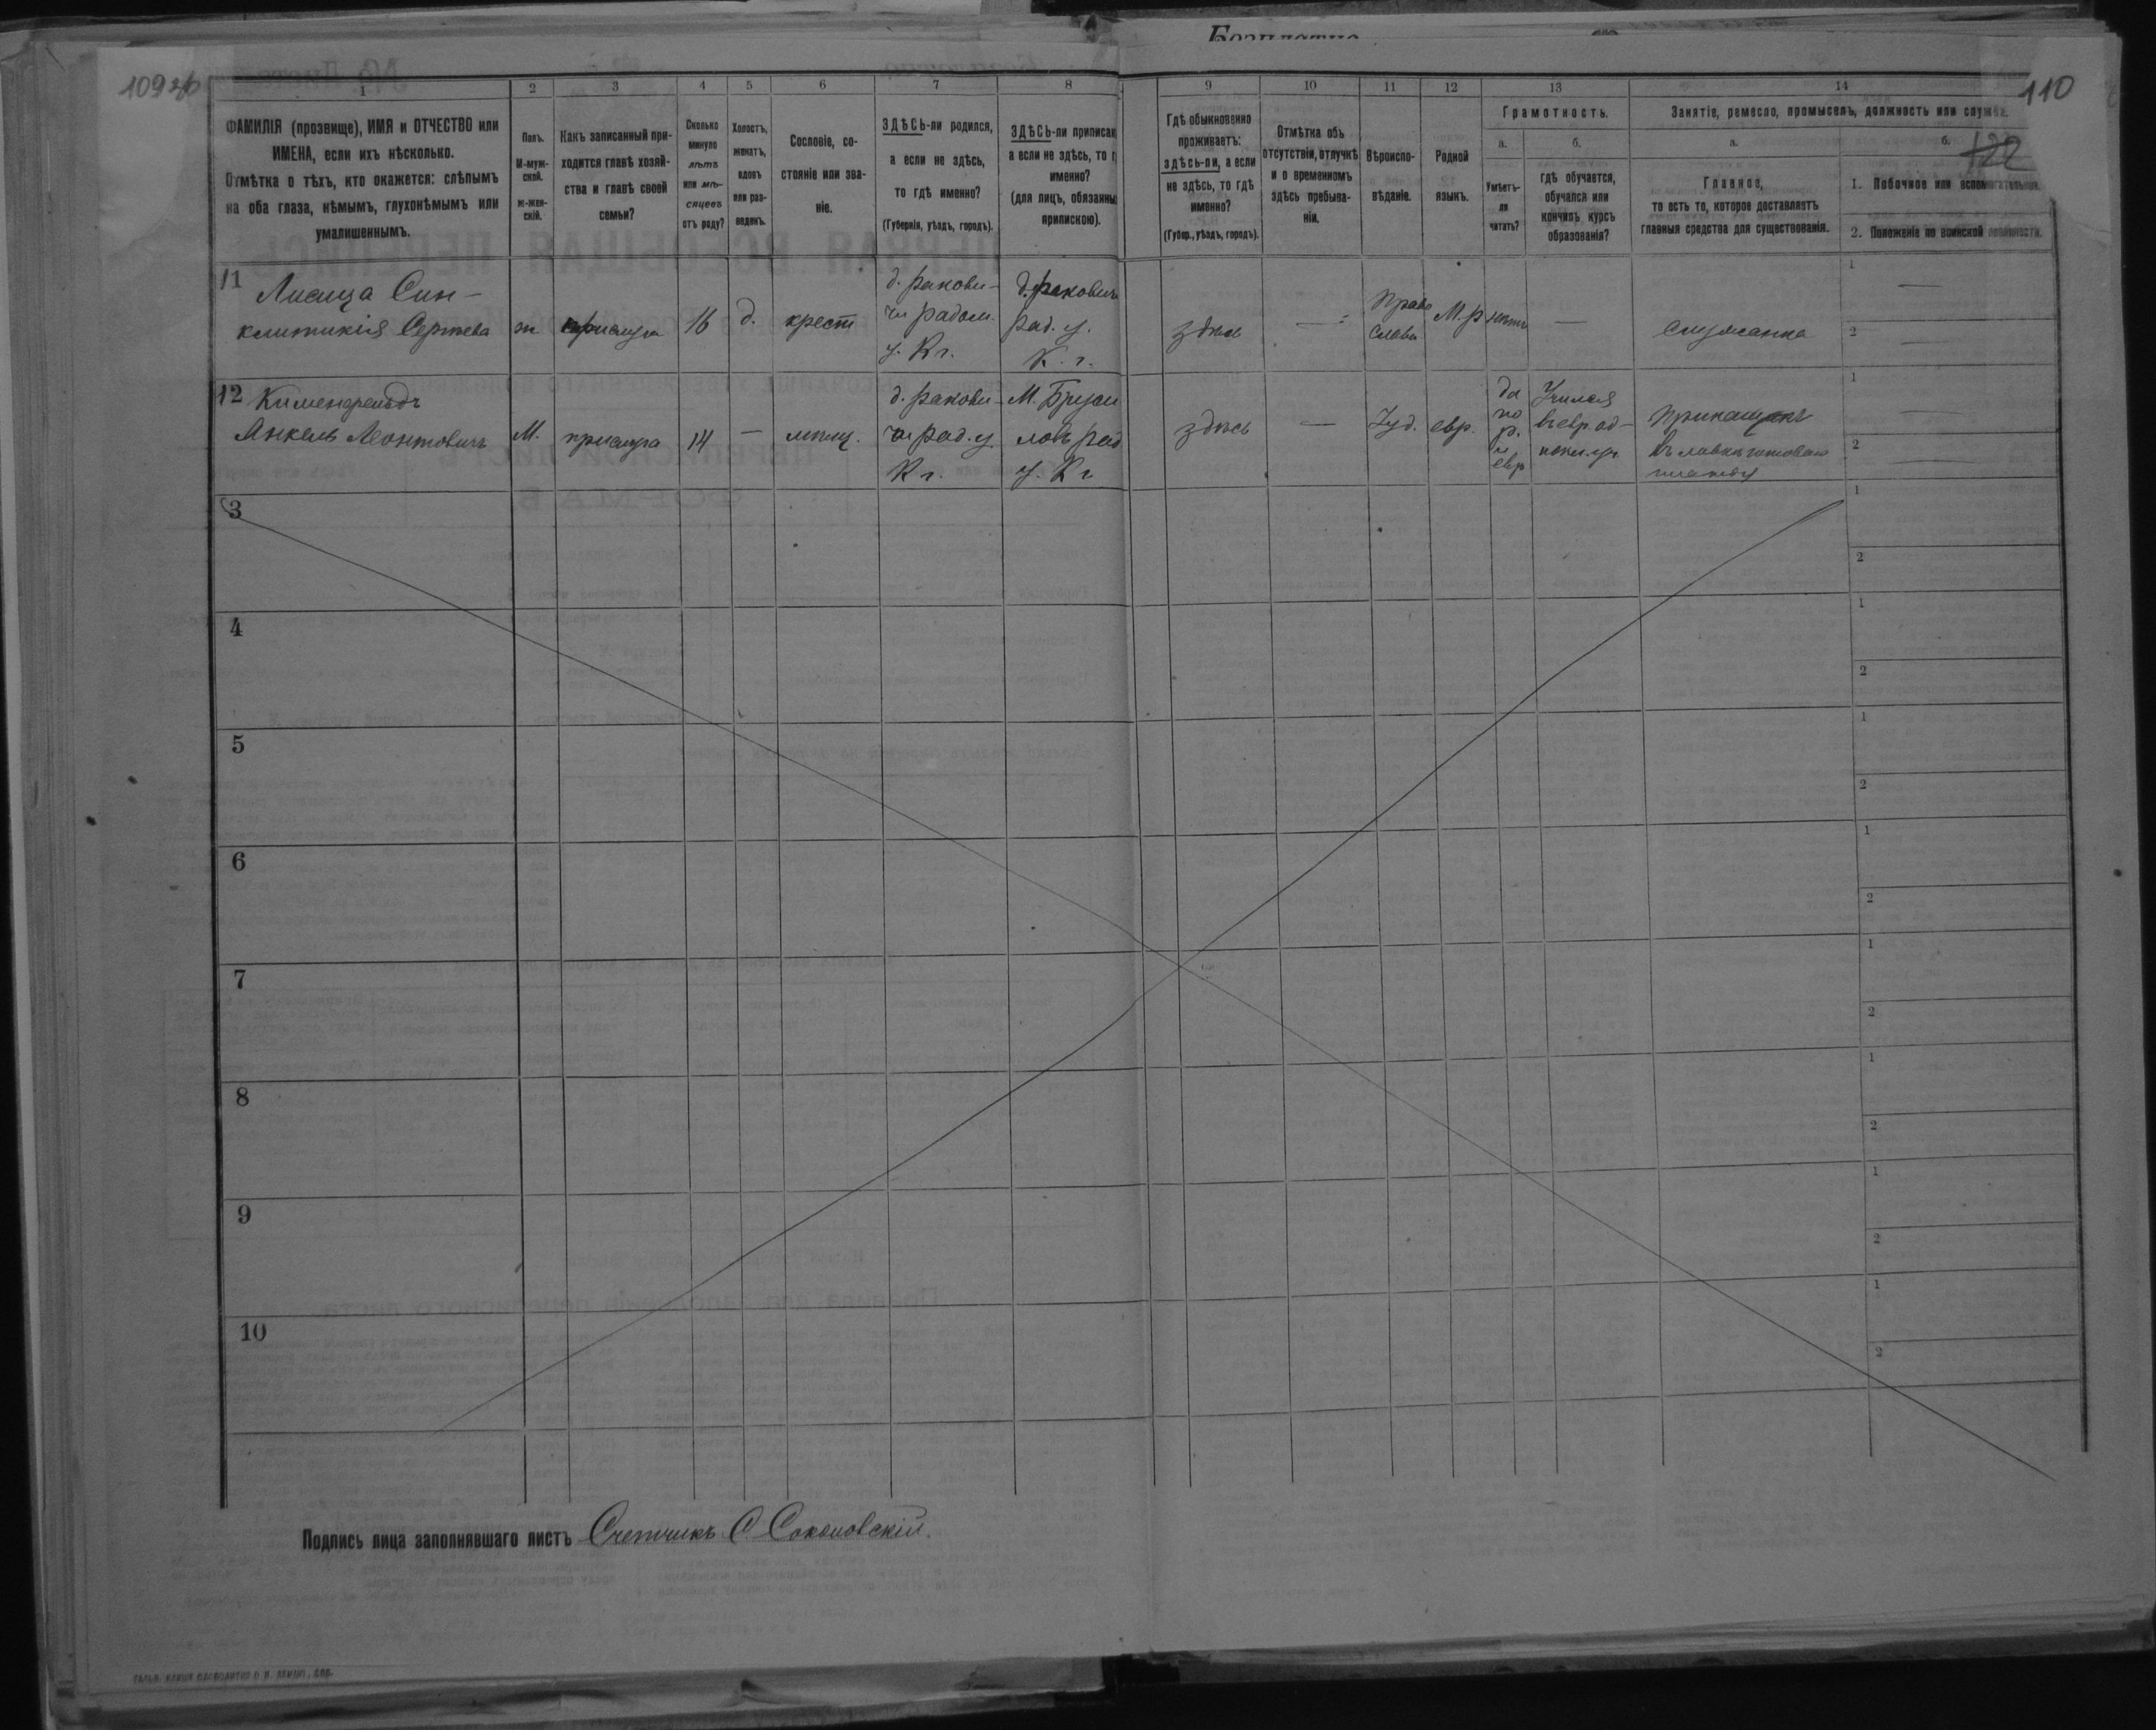 Безплатно
109 об
110
122
1 2 3 4 5 6 7 8 9 10 11 12 13 14
ФАМИЛІЯ (прозвище), ИМЯ и ОТЧЕСТВО или
ИМЕНА, если ихъ нѣсколько.
Отмѣтка о тѣхъ, кто окажется: слѣпымъ
на оба глаза, нѣмымъ, глухонѣмымъ или
умалишеннымъ.
Полъ.
М-муж-
ской.
Ж-жен-
скій.
Какъ записанный при-
ходится главѣ хозяй-
ства и главѣ своей
семьи?
Сколько
минуло
лѣтъ
или мѣ-
сяцевъ
отъ роду?
Холостъ,
женатъ,
вдовъ
или раз-
веденъ.
Сословіе, со-
стояніе или зва-
ніе.
ЗДѢСЬ-ли родился,
а если не здѣсь,
то гдѣ именно?
(Губернія, уѣздъ, городъ).
ЗДѢСЬ-ли приписан
а если не здѣсь, то г
именно?
(для лицъ, обязанны
припискою).
Гдѣ обыкновенно
проживаетъ:
здѣсь-ли, а если
не здѣсь, то гдѣ
именно?
(Губер., уѣздъ, городъ).
Отмѣтка объ
отсутствіи, отлучкѣ
и о временномъ
здѣсь пребыва-
ніи.
Вѣроиспо-
вѣданіе.
Родной
языкъ.
Грамотность.
а.
Умѣетъ-
ли
читать?
б.
гдѣ обучается,
обучался или
кончилъ курсъ
образованія?
Занятіе, ремесло, промыселъ, должность или служба.
а.
Главное,
то есть то, которое доставляетъ
главныя средства для существованія.
б.
1. Побочное или вспомогательное.
2. Положеніе по воинской повинности.
11
Лисица Син-
клитикія Сергѣева
прислуга
16
д.
крест
д. Ракови-
чи Радом.
у. К г.
д.Ракович
Рад. у.
К. г.
здѣсь
—
Право
славн
М.р
нѣтъ
—
служанка
1 —
2 —
12
Янкель Леонтовичъ
М.
прислуга
14
—
мѣщ.
д. Ракови-
чи Рад. у
К г.
М. Бруси
ловъ Рад
у. К г.
здѣсь
—
Іуд.
евр.
да
по
р.
и
евр
Учился
въ евр. од-
Прикащикъ
въ лавкѣ готоваго
платья
1 —
2 —
3
1
2
4
1
2
5
1
2
6
1
2
7
1
2
8
1
2
9
1
2
10
1
2
Подпись лица заполнявшаго листъ Счетчикъ С. Соколовскій.